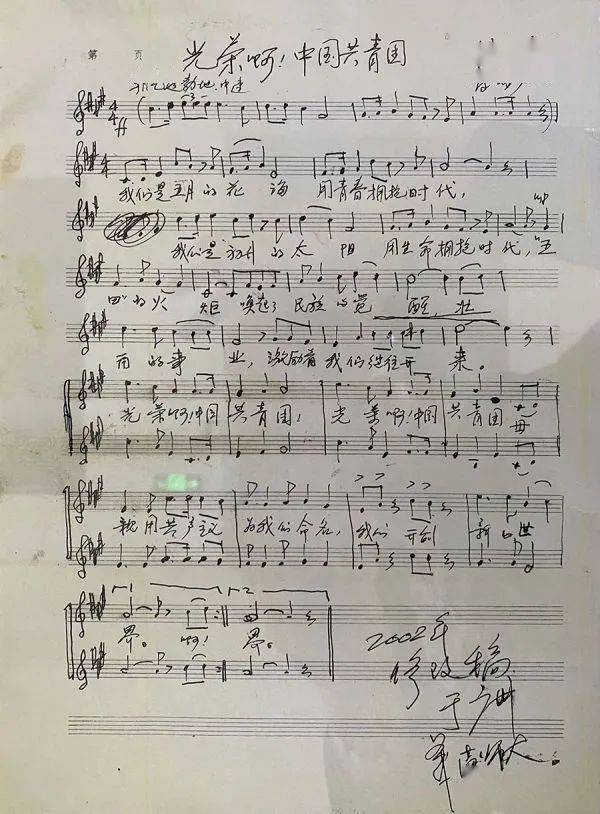 第 页
光荣啊！中国共青团
中速
4 4 ff
我们是五月的花海 用青春拥抱时代，
我们是初升的太阳 用生命拥抱时代，“五
四”的火炬 唤起了民族的觉醒，壮
丽的事业，激励着我们继往开来。
光荣啊！中国共青团！光荣啊！中国共青团 母
亲用共产主义 为我们命名，我们开创 新的世
1 2
界。啊！界。
2002年
修改稿
于广州
华南师大